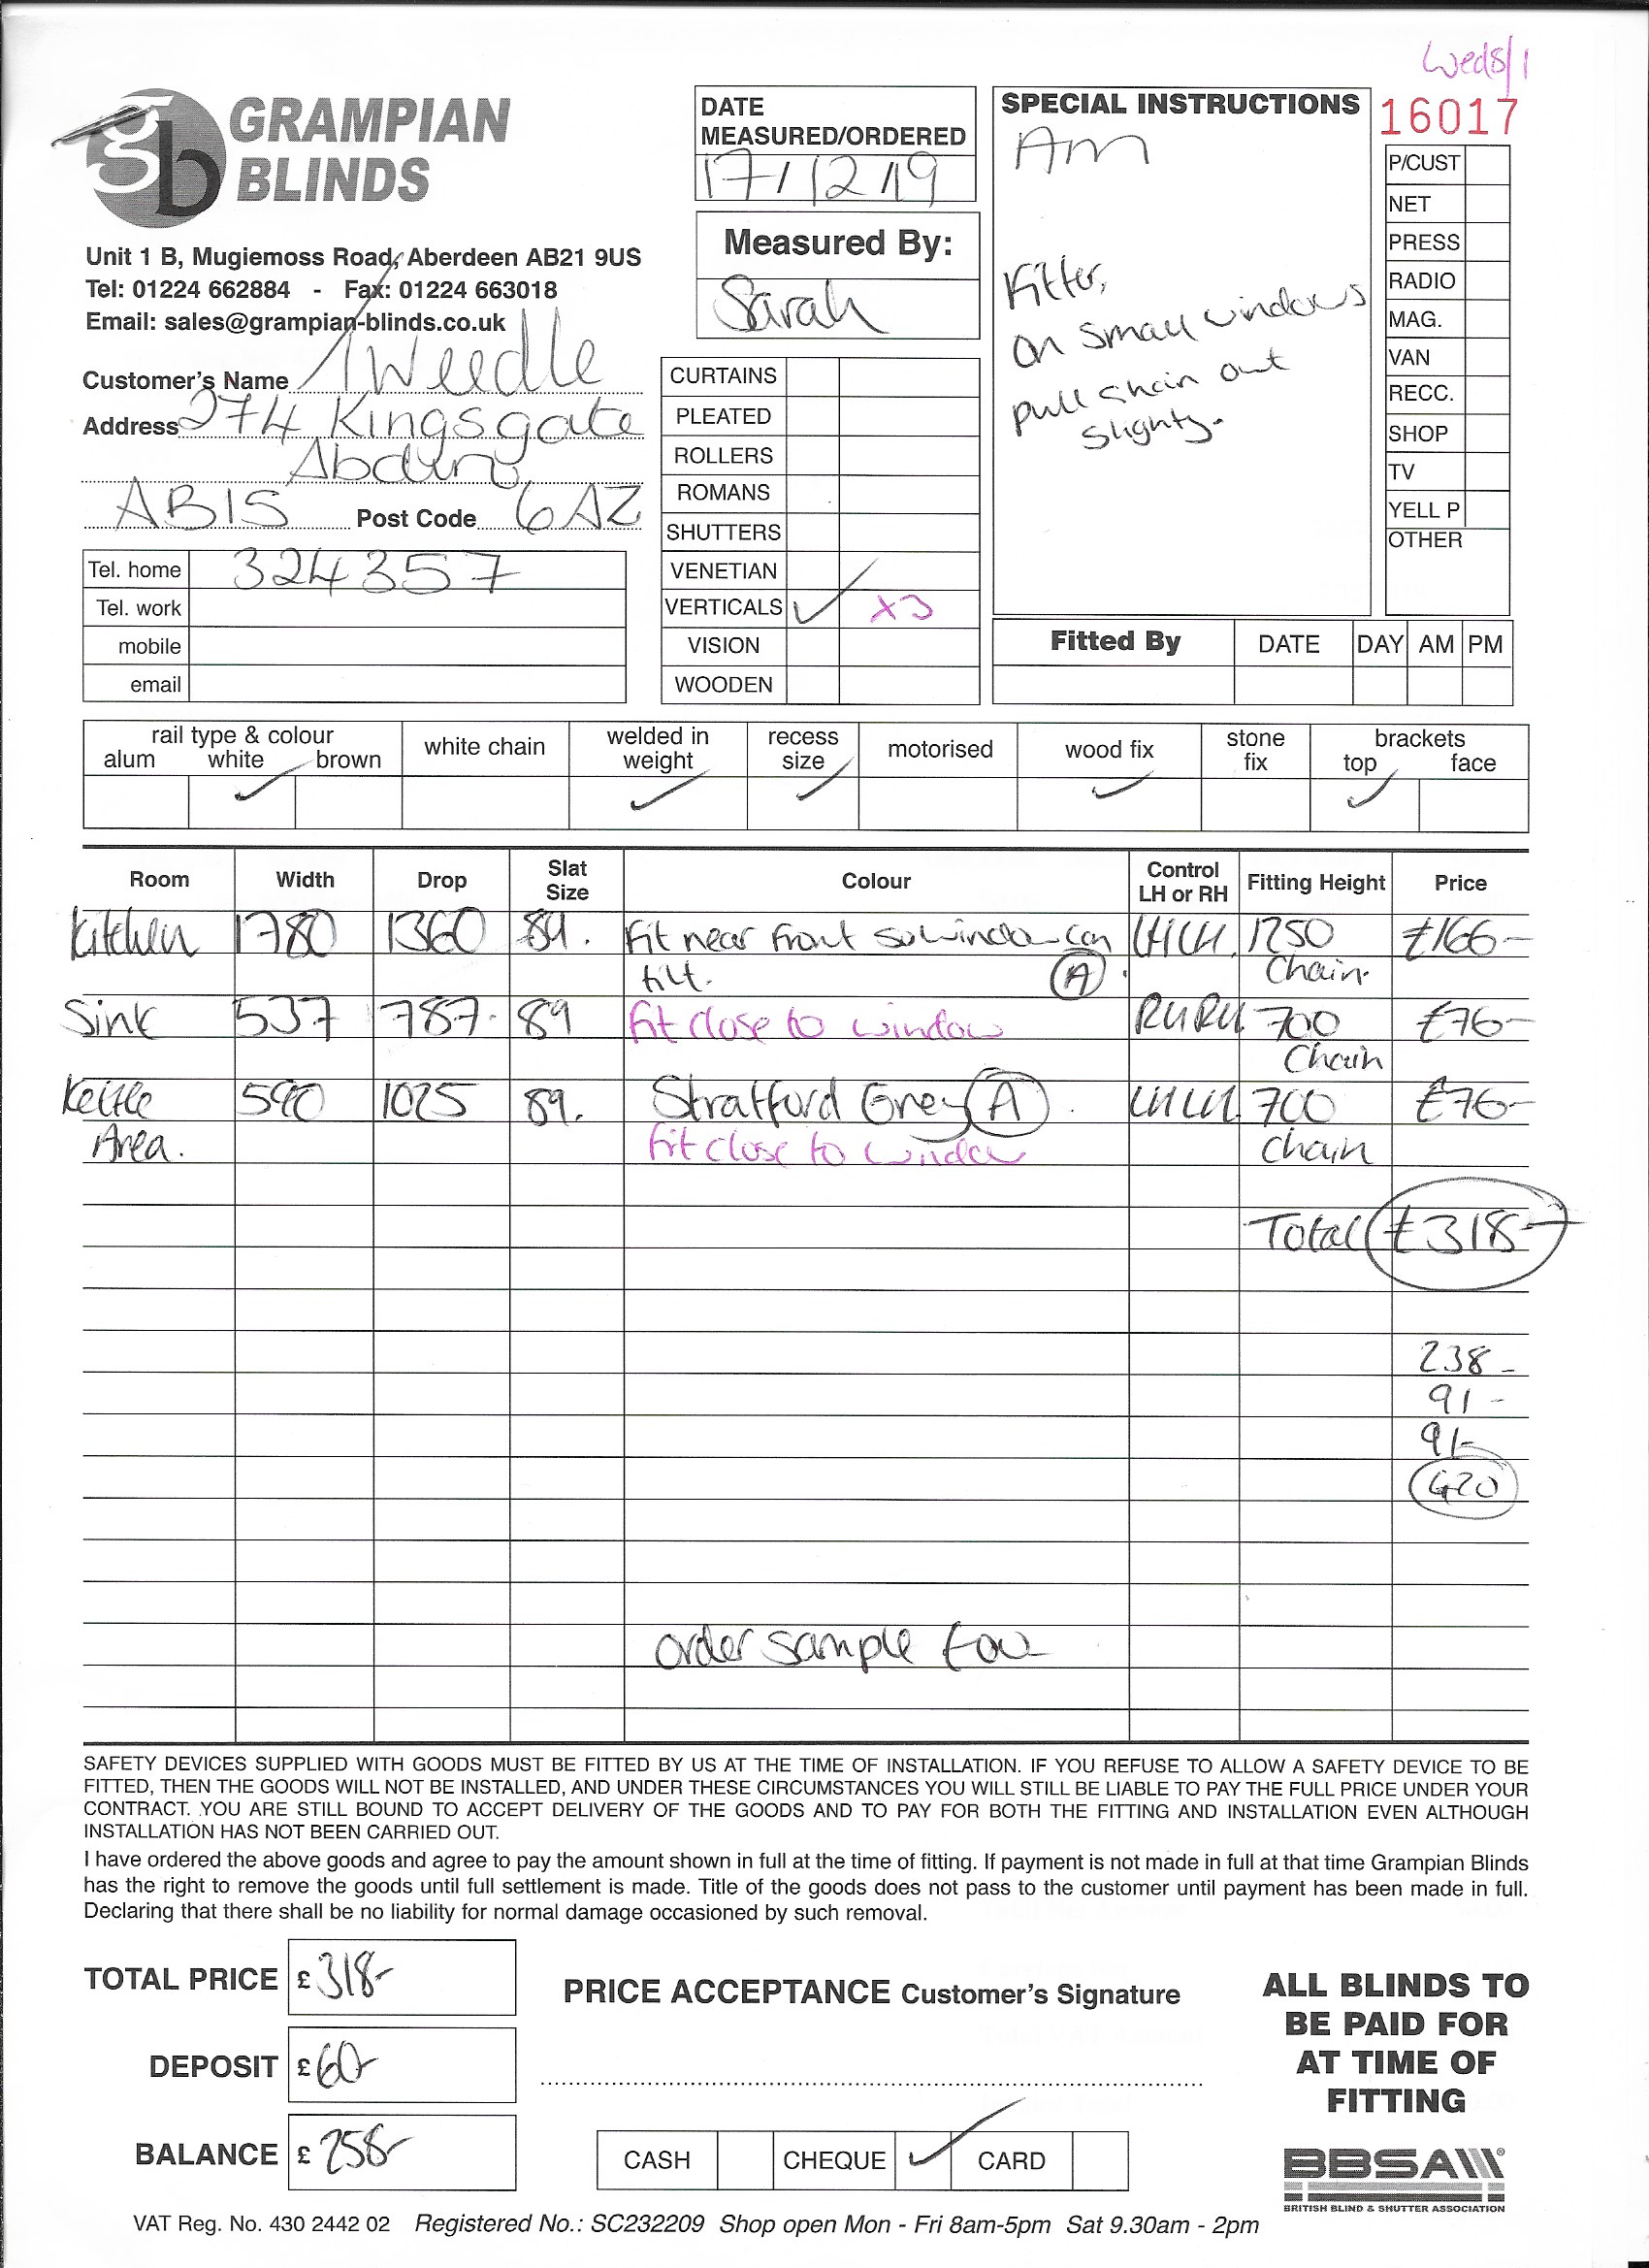 Wed 8/1
GRAMPIAN
BLINDS
Unit 1 B, Mugiemoss Road, Aberdeen AB21 9US
Tel: 01224 662884 - Fax: 01224 663018
Email: sales@grampian-blinds.co.uk
Customer's Name Tweedle
Address 274 Kingsgate
AB15 Post Code 6AZ
Tel. home 324357
Tel. work
mobile
email
DATE
MEASURED/ORDERED
17/12/19
Measured By:
Sarah
CURTAINS
PLEATED
ROLLERS
ROMANS
SHUTTERS
VENETIAN
VERTICALS ✓ x3
VISION
WOODEN
SPECIAL INSTRUCTIONS
Am
Fitter,
on small windows
pull chain out
slighty.
16017
P/CUST
NET
PRESS
RADIO
MAG.
VAN
RECC.
SHOP
TV
YELL P
OTHER
Fitted By DATE DAY AM PM
rail type & colour
alum white brown
white chain
welded in
weight
recess
size
motorised
wood fix
stone
fix
brackets
top face
Room Width Drop Slat Size Colour Control LH or RH Fitting Height Price
Kitchen 1780 1360 89. fit near front so window can LHLH. 1250 £166-
tilt. A Chain.
Sink 537 787. 89 fit close to window RHRH 700 £76-
Chain
Kettle 590 1025 89. Stratford Grey A LHLH 700 £76-
Area. fit close to window chain
Total £318-
238-
91-
91-
420
order sample too
SAFETY DEVICES SUPPLIED WITH GOODS MUST BE FITTED BY US AT THE TIME OF INSTALLATION. IF YOU REFUSE TO ALLOW A SAFETY DEVICE TO BE
FITTED, THEN THE GOODS WILL NOT BE INSTALLED, AND UNDER THESE CIRCUMSTANCES YOU WILL STILL BE LIABLE TO PAY THE FULL PRICE UNDER YOUR
CONTRACT. YOU ARE STILL BOUND TO ACCEPT DELIVERY OF THE GOODS AND TO PAY FOR BOTH THE FITTING AND INSTALLATION EVEN ALTHOUGH
INSTALLATION HAS NOT BEEN CARRIED OUT.
I have ordered the above goods and agree to pay the amount shown in full at the time of fitting. If payment is not made in full at that time Grampian Blinds
has the right to remove the goods until full settlement is made. Title of the goods does not pass to the customer until payment has been made in full.
Declaring that there shall be no liability for normal damage occasioned by such removal.
TOTAL PRICE £ 318-
DEPOSIT £ 60-
BALANCE £ 258-
PRICE ACCEPTANCE Customer's Signature
CASH CHEQUE ✓ CARD
ALL BLINDS TO
BE PAID FOR
AT TIME OF
FITTING
BBSA
BRITISH BLIND & SHUTTER ASSOCIATION
VAT Reg. No. 430 2442 02 Registered No.: SC232209 Shop open Mon - Fri 8am-5pm Sat 9.30am - 2pm